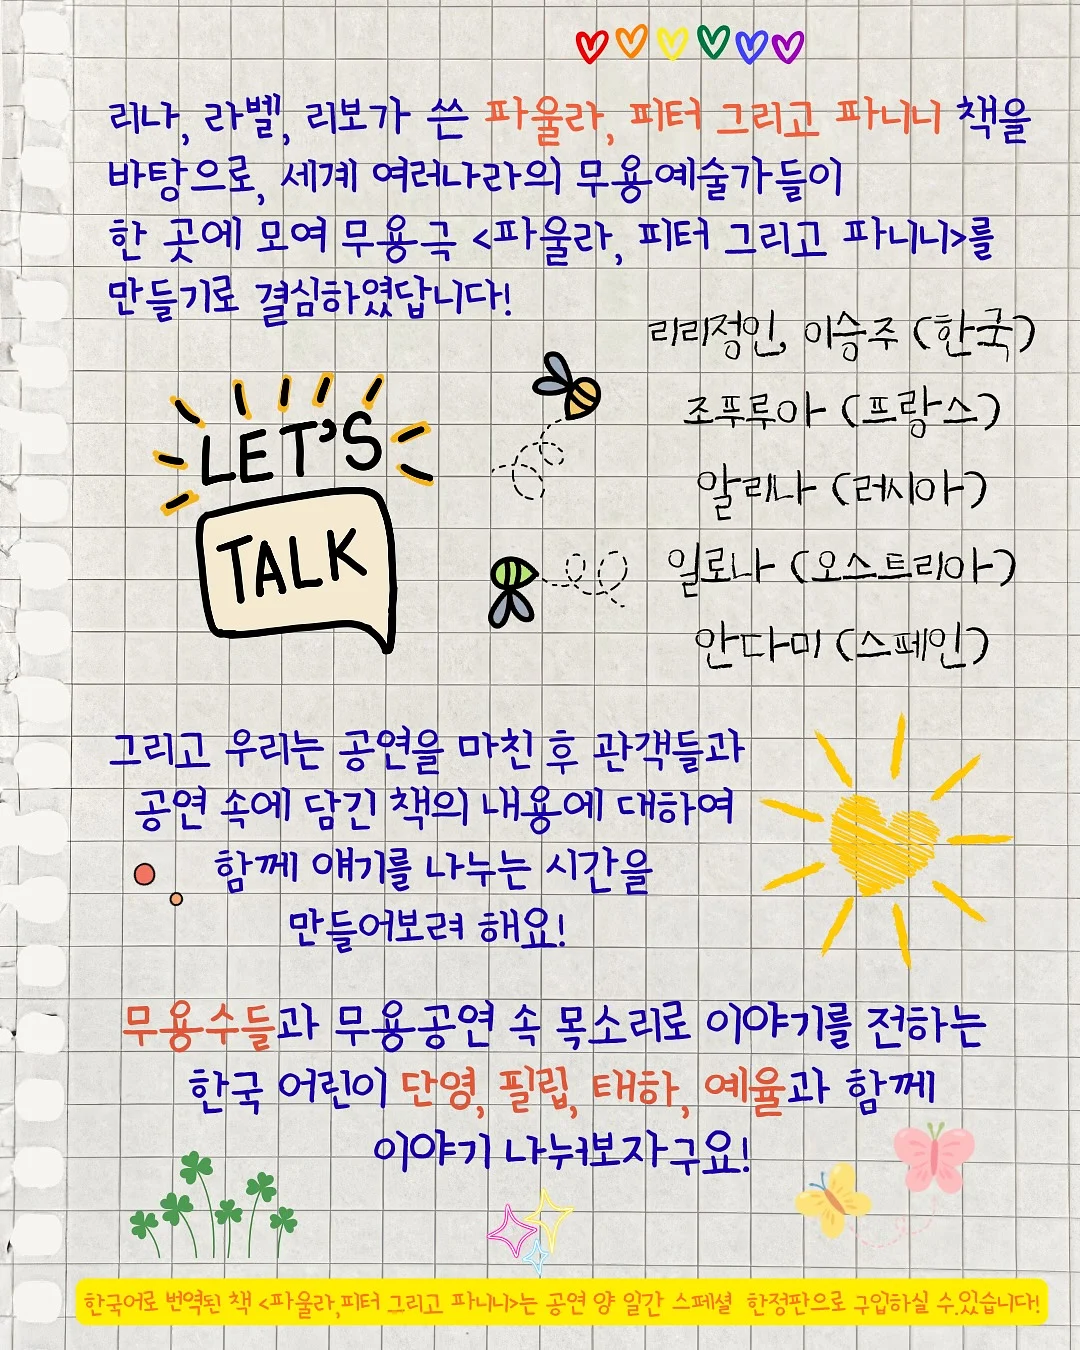 리나, 라벨, 리보가 쓴 파울라, 피터 그리고 파니니 책을
바탕으로, 세계 여러나라의 무용예술가들이
한 곳에 모여 무용극 <파울라, 피터 그리고 파니니>를
만들기로 결심하였답니다!
리리정인, 이승주 (한국)
조푸루아 (프랑스)
알리나 (러시아)
일로나 (오스트리아)
안다미 (스페인)
LET'S
TALK
그리고 우리는 공연을 마친 후 관객들과
공연 속에 담긴 책의 내용에 대하여
함께 얘기를 나누는 시간을
만들어보려 해요!
무용수들과 무용공연 속 목소리로 이야기를 전하는
한국 어린이 단영, 필립, 태하, 예율과 함께
이야기 나눠보자구요!
한국어로 번역된 책 <파울라,피터 그리고 파니니>는 공연 양 일간 스페셜 한정판으로 구입하실 수 있습니다!